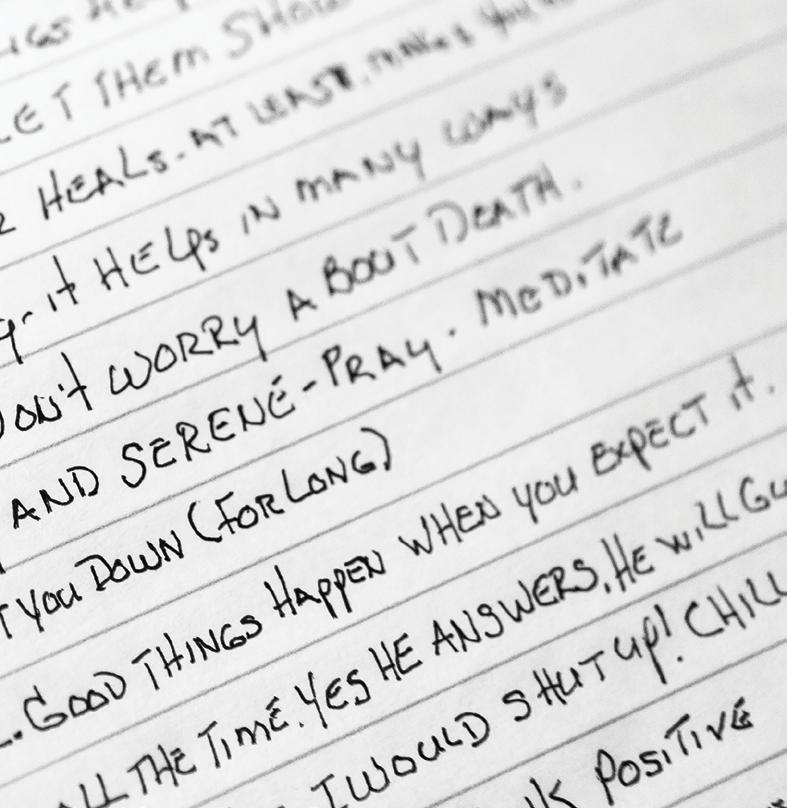 LET THEM SHOW
HEALS. AT LEAST, MAKES YOU
- it HELPS IN MANY WAYS
DON't WORRY ABOUT DEATH.
AND SERENE - PRAY. MEDITATE
YOU DOWN (FOR LONG)
. GOOD THINGS HAPPEN WHEN YOU EXPECT it.
ALL THE TIME. YES HE ANSWERS. HE WILL
I WOULD SHUT UP! CHILL
POSITIVE